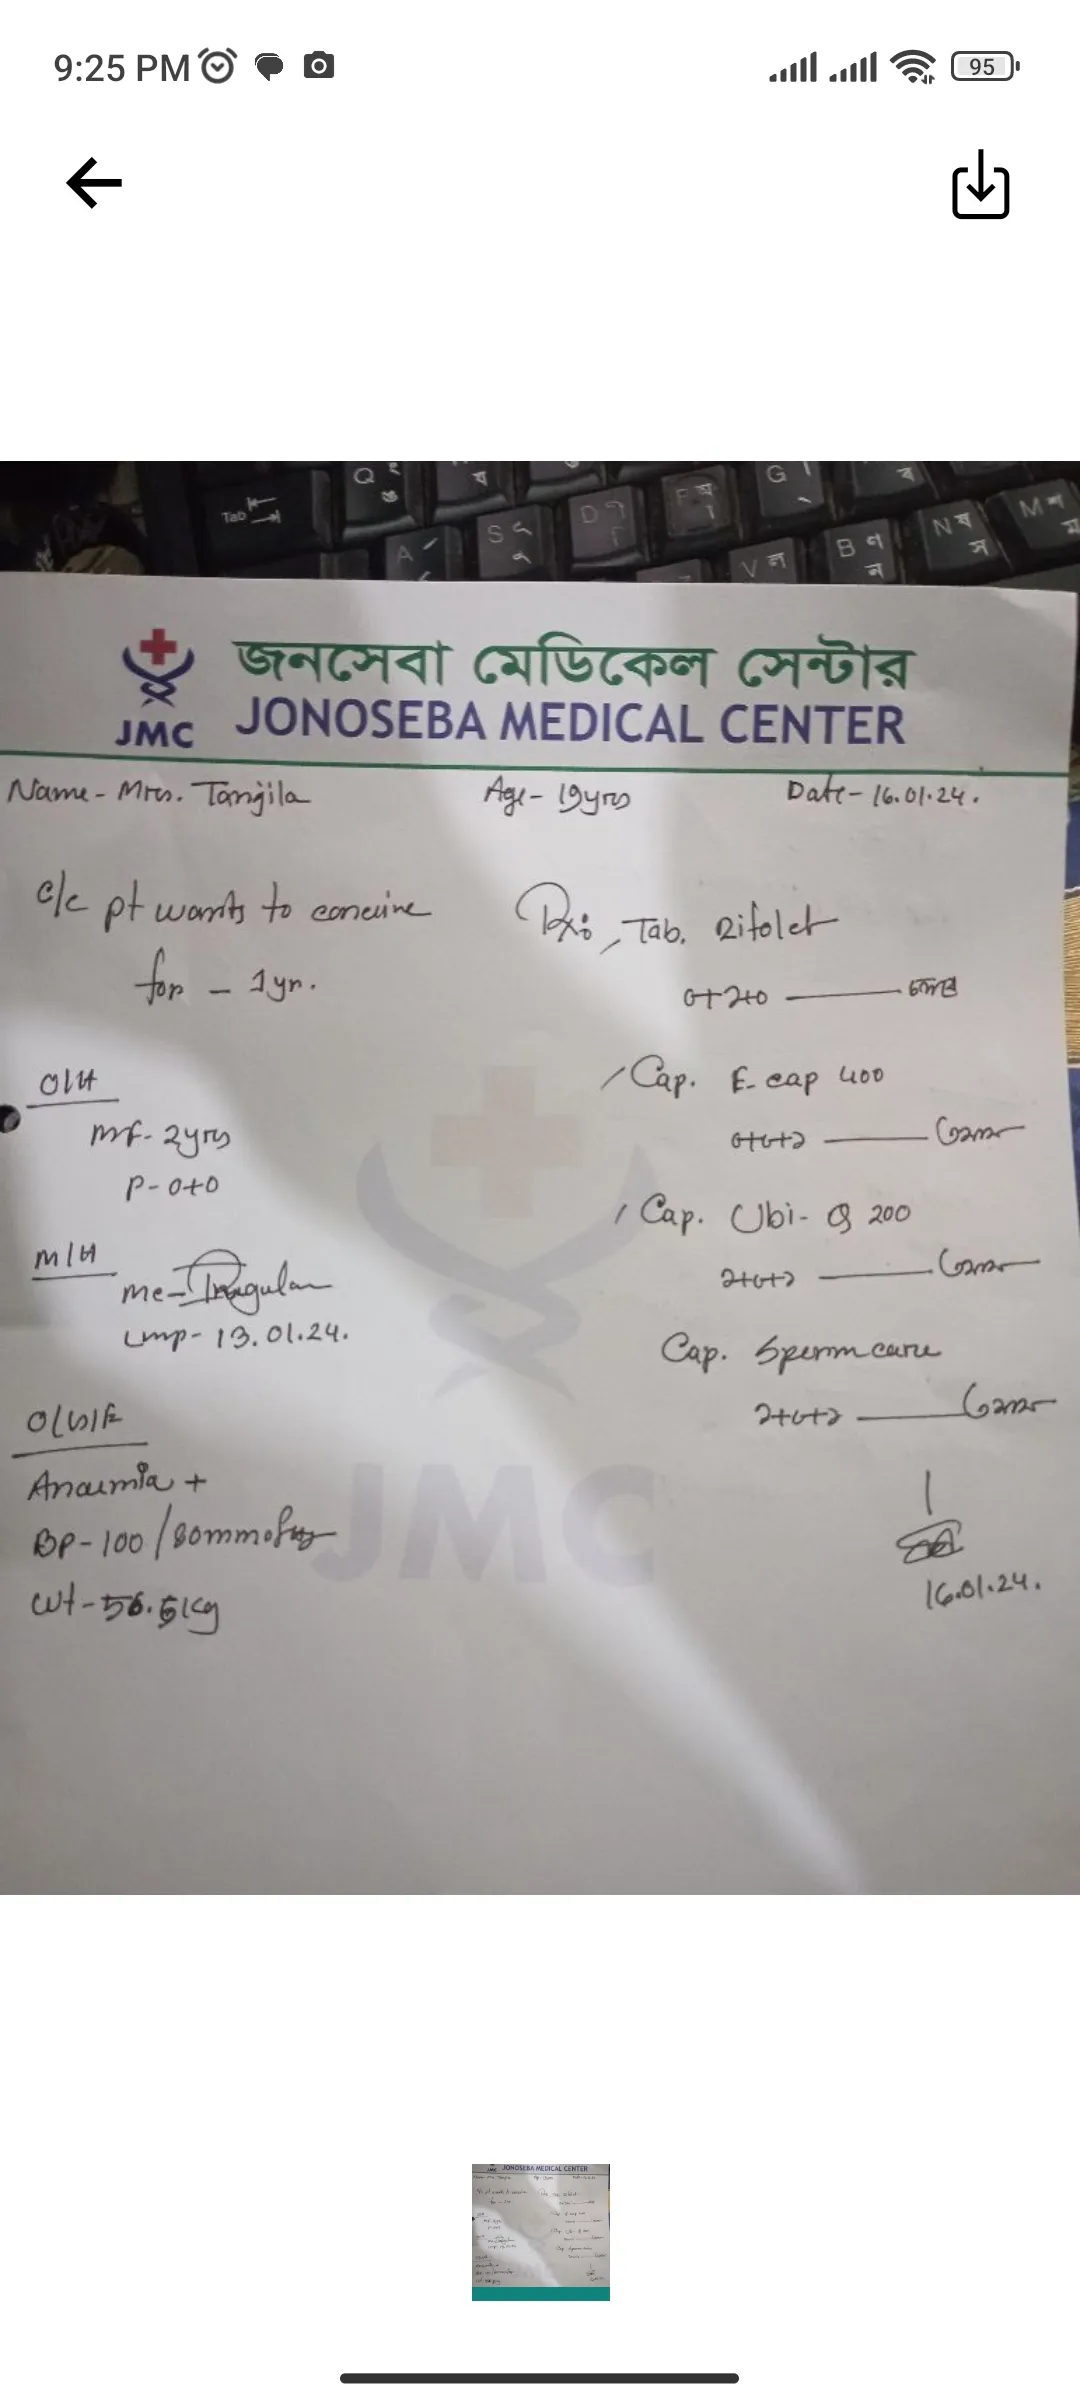 9:25 PM
95
Tab
Q
S
D
F
G
A
V
B
N
M
জনসেবা মেডিকেল সেন্টার
JMC
JONOSEBA MEDICAL CENTER
Name - Mrs. Tangila Age - 19yrs Date - 16.01.24.
c/c pt wants to conceive
for - 1yr.
O/H
MF - 2yrs
P - 0+0
M/H
MC - Irregular
LMP - 13.01.24.
O/E
Anaemia +
BP - 100/80mmofHg
Wt - 56.5kg
Rx: Tab.
0+1+0
Cap. E-cap 400
0+0+1
Cap. Ubi-Q 200
1+0+1
Cap. Spermcare
1+0+1
16.01.24.
JMC
JMC JONOSEBA MEDICAL CENTER